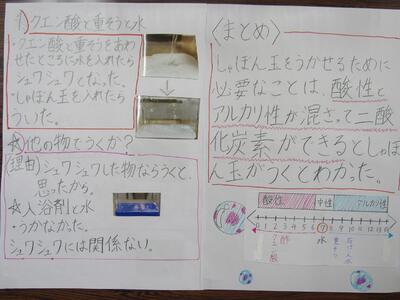 ①クエン酸と重そうと水
・クエン酸と重そうをあわ
せたところに水を入れたら
シュワシュワとなった。
・しゃぼん玉を入れたら
ういた。
☆他の物でうくか?
(理由)シュワシュワした物ならうくと、
思ったから。
☆入浴剤と水
うかなかった。
シュワシュワには関係ない。
〈まとめ〉
しゃぼん玉をうかせるために
必要なことは、酸性と
アルカリ性が混さって二酸
化炭素ができるとしゃぼ
ん玉がうくとわかった。
酸性 中性 アルカリ性
1 2 3 4 5 6 7 8 9 10 11 12 13 14
クエン酸
酢
水
重そう
石けん水